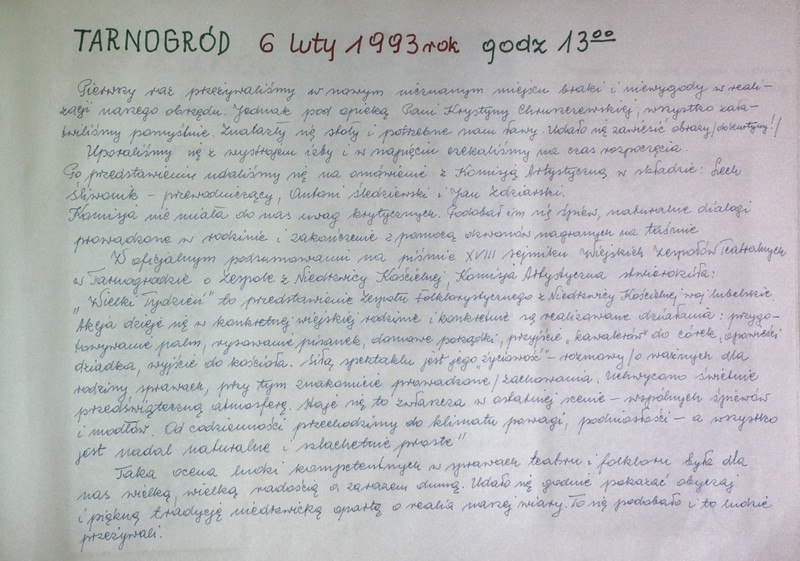 TARNOGRÓD 6 luty 1993 rok godz 13⁰⁰
Pierwszy raz przeżywaliśmy w nowym nieznanym miejscu braki i niewygody w reali-
zacji naszego obrzędu. Jednak pod opieką Pani Krystyny Chruszczewskiej, wszystko zała-
twiliśmy pomyślnie. Znalazły się stoły i potrzebne nam ławy. Udało się zawiesić obrazy /dokwitujmy!/
Uporaliśmy się z wystrojem izby i w napięciu czekaliśmy na czas rozpoczęcia.
Po przedstawieniu udaliśmy się na omówienie z Komisją Artystyczną w składzie: Lech
Śliwonik - przewodniczący, Antoni Śledziewski i Jan Zdziarski.
Komisja nie miała do nas uwag krytycznych. Podobał im się śpiew, naturalne dialogi
prowadzone w rodzinie i zakończenie z pomocą dzwonów nagranych na taśmie
W oficjalnym podsumowaniu na piśmie XVIII Sejmiku Wiejskich Zespołów Teatralnych
w Tarnogrodzie o Zespole z Niedrzwicy Kościelnej, Komisja Artystyczna stwierdziła:
„Wielki Tydzień" to przedstawienie Zespołu Folklorystycznego z Niedrzwicy Kościelnej, woj lubelskie.
Akcja dzieje się w konkretnej wiejskiej rodzinie i konkretnie są realizowane działania: przygo-
towywanie palm, rysowanie pisanek, domowe porządki, przyjście „kawalerów" do córek, opowieści
dziadka, wyjście do kościoła. Siłą spektaklu jest jego „życiowość" - rozmowy /o ważnych dla
rodziny sprawach, przy tym znakomicie prowadzone/ zachowania. Uchwycono świetnie
przedświąteczną atmosferę. Staje się to zwłaszcza w ostatniej scenie - wspólnych śpiewów
i modłów. Od codzienności przechodzimy do klimatu powagi, podniosłości - a wszystko
jest nadal naturalne i szlachetnie proste"
Taka ocena ludzi kompetentnych w sprawach teatru i folkloru była dla
nas wielką, wielką radością a zarazem dumą. Udało się godnie pokazać obyczaj
i piękną tradycję niedrzwicką opartą o realia naszej wiary. To się podobało i to ludzie
przeżywali.